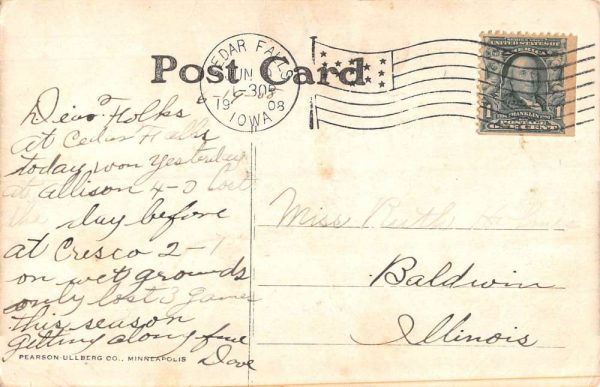 Post Card
CEDAR FALLS
JUN
630 P
1908
IOWA
UNITED STATES OF AMERICA
FRANKLIN
1 POSTAGE 1
ONE CENT
Dear Folks
at Cedar Falls
today won yesterday
at Allison 4-0 Lost
the day before
at Cresco 2-1
on wet grounds
only lost 3 games
this season
getting along fine
Dave
Miss Ruth
Baldwin
Illinois
PEARSON-ULLBERG CO., MINNEAPOLIS